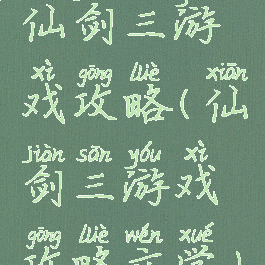 仙剑三游
xì gōng lüè xiān
戏攻略(仙
jiàn sān yóu xì
剑三游戏
gōng lüè wén xué
攻略文学)